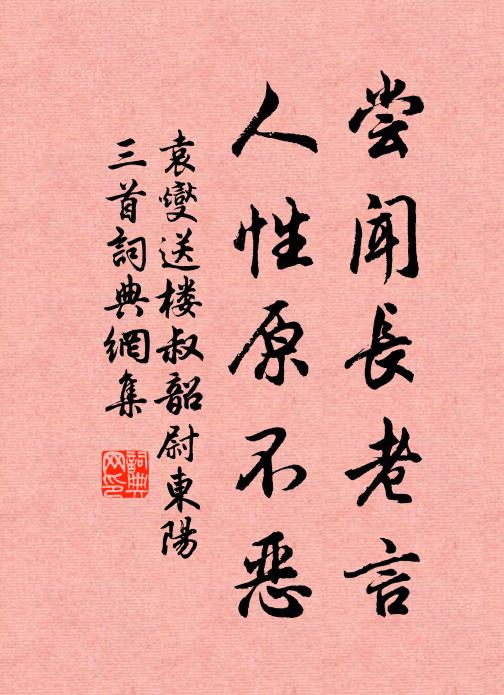 尝闻長老言
人性原不恶
袁燮送楼叔韶尉東陽
三首詞典網集
詞典网印